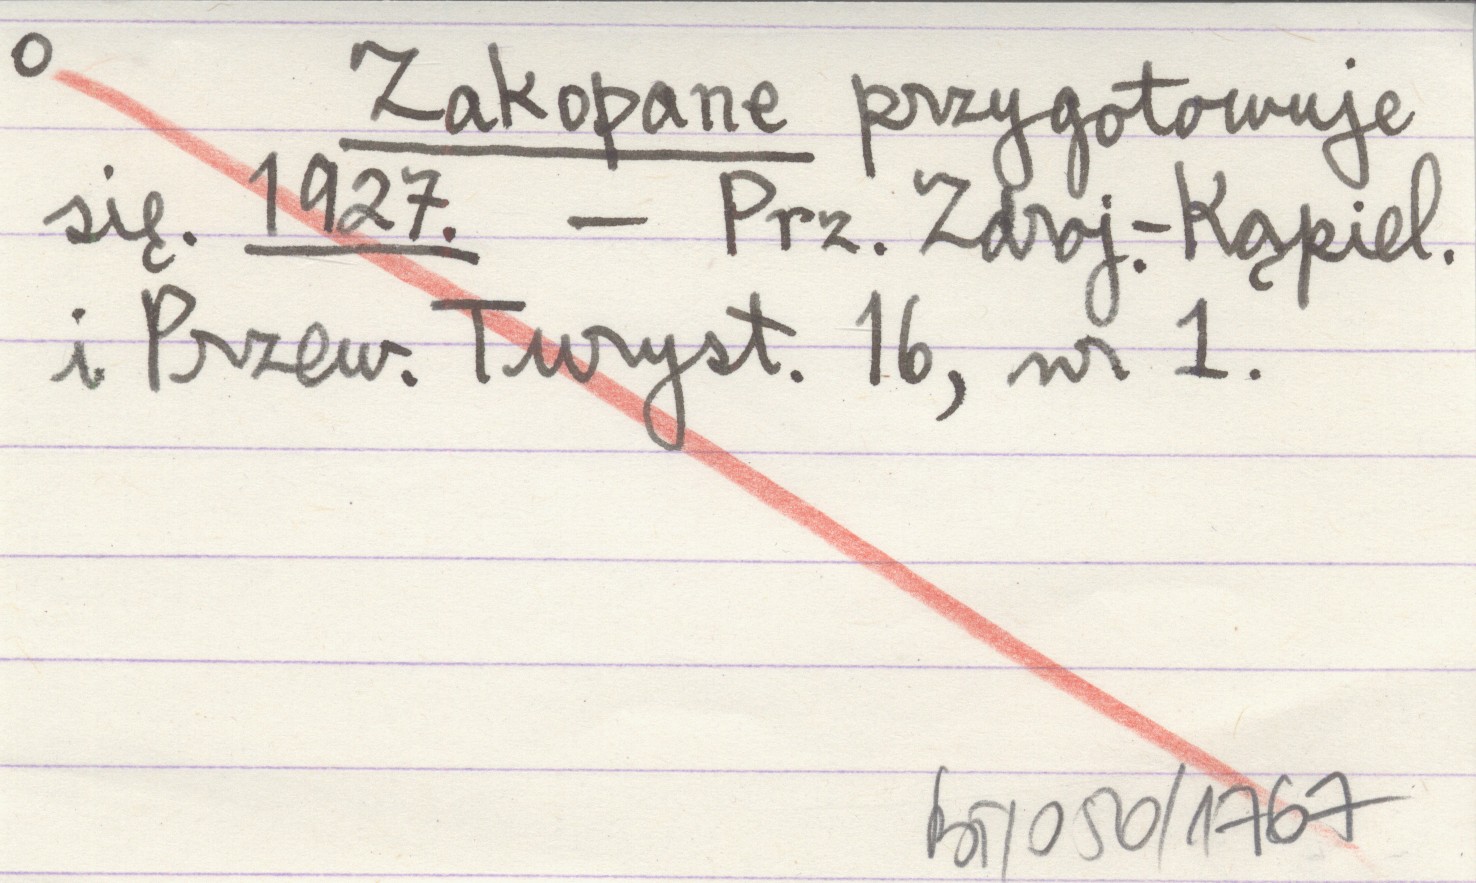 o Zakopane przygotowuje
się. 1927. — Prz. Zdroj.-Kąpiel.
i Przew. Turyst. 16, nr 1.
/050/1767